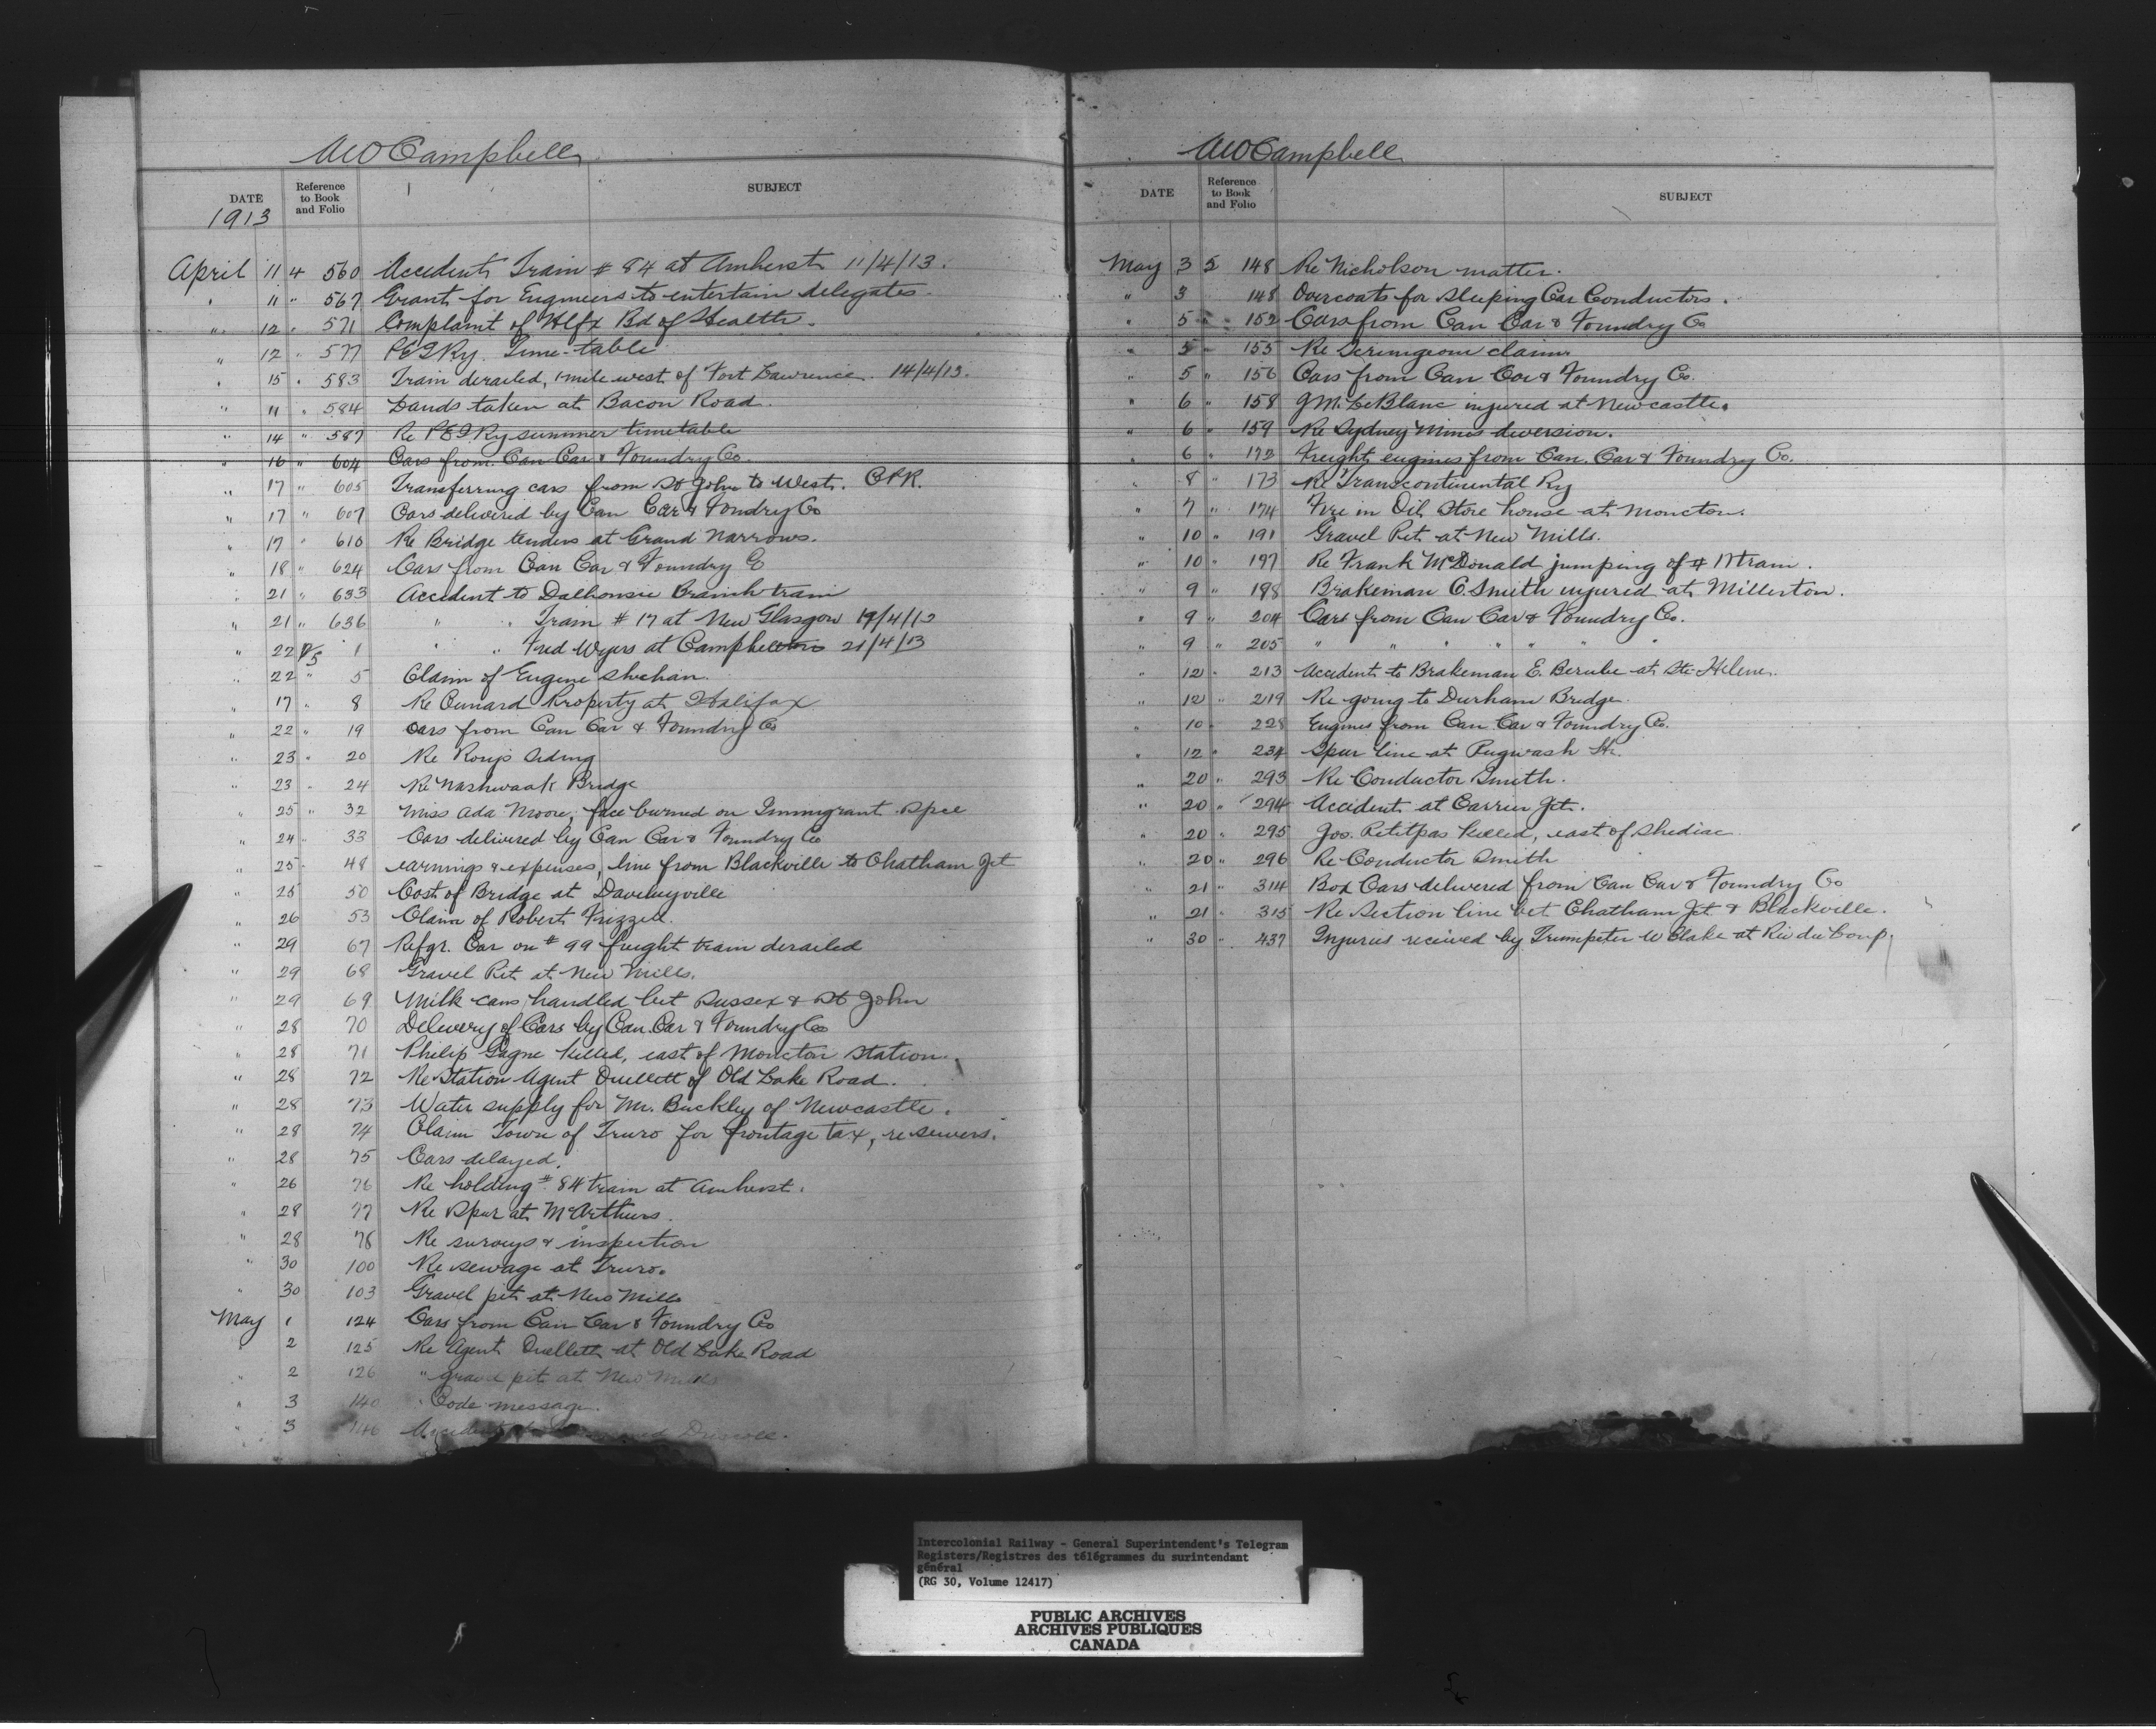 AWCampbell
DATE Reference to Book and Folio SUBJECT
1913
April 11 4 560 Accident, Train # 84 at Amherst 11/4/13.
" 11 " 567 Grant for Engineers to entertain delegates.
" 12 " 571 Complaint of Hlfx Bd of Health.
" 12 " 577 PEIRy. Time-table
" 15 " 583 Train derailed, 1 mile west of Fort Lawrence 14/4/13.
" 11 " 584 Lands taken at Bacon Road.
" 14 " 587 Re PEIRy summer timetable
" 16 " 604 Cars from Can Car & Foundry Co.
" 17 " 605 Transferring cars from St John to West. CPR.
" 17 " 607 Cars delivered by Can Car & Foundry Co
" 17 " 610 Re Bridge tenders at Grand Narrows.
" 18 " 624 Cars from Can Car & Foundry Co
" 21 " 633 Accident to Dalhousie Branch train
" 21 " 636 " " Train # 17 at New Glasgow 19/4/13
" 22 5 1 " " Fred Wyers at Campbellton 21/4/13
" 22 " 5 Claim of Eugene Shehan.
" 17 " 8 Re Cunard Property at Halifax
" 22 " 19 Cars from Can Car & Foundry Co
" 23 " 20 Re siding
" 23 " 24 Re Nashwaak Bridge
" 25 " 32 Miss Ada Moore, face burned on Immigrant Spcl
" 24 " 33 Cars delivered by Can Car & Foundry Co
" 25 " 48 earnings & expenses, line from Blackville to Chatham Jct
" 25 50 Cost of Bridge at
" 26 53 Claim of Robert Frizzell.
" 29 67 Refgr. Car on # 99 freight train derailed
" 29 68 Gravel Pit at New Mills.
" 29 69 Milk cans handled bet Sussex & St John
" 28 70 Delivery of Cars by Can. Car & Foundry Co
" 28 71 Philip Gagne killed, east of Moncton Station.
" 28 72 Re Station Agent Ouellett of Old Lake Road.
" 28 73 Water supply for Mr. Buckley of Newcastle.
" 28 74 Claim Town of Truro for frontage tax, re sewers.
" 28 75 Cars delayed.
" 26 76 Re holding # 84 train at Amherst.
" 28 77 Re Spur at McArthurs.
" 28 78 Re surveys & inspection
" 30 100 Re sewage at Truro.
" 30 103 Gravel pit at New Mills
May 1 124 Cars from Can Car & Foundry Co
" 2 125 Re Agent Ouellett at Old Lake Road
" 2 126 " gravel pit at New Mills
" 3 140 " Code message.
" 3 146 Accident
AWCampbell
DATE Reference to Book and Folio SUBJECT
May 3 5 148 Re Nicholson matter.
" 3 148 Overcoats for Sleeping Car Conductors.
" 5 " 152 Cars from Can Car & Foundry Co
" 5 " 155 Re Scrimgeour claim
" 5 " 156 Cars from Can Car & Foundry Co.
" 6 " 158 J M. LeBlanc injured at Newcastle.
" 6 " 159 Re Sydney Mines diversion.
" 6 " 172 Freight engines from Can. Car & Foundry Co.
" 8 " 173 Re Transcontinental Ry
" 7 " 174 Fire in Oil Store house at Moncton.
" 10 " 191 Gravel Pit at New Mills.
" 10 " 197 Re Frank McDonald jumping of # 17 train.
" 9 " 198 Brakeman C. Smith injured at Millerton.
" 9 " 204 Cars from Can Car & Foundry Co.
" 9 " 205 " " " " " "
" 12 " 213 Accident to Brakeman E. Berube at Ste Helene.
" 12 " 219 Re going to Durham Bridge.
" 10 " 228 Engines from Can. Car & Foundry Co.
" 12 " 234 Spur line at Pugwash Hr.
" 20 " 293 Re Conductor Smith.
" 20 " 294 Accident at Carrier Jct.
" 20 " 295 Jos. Petitpas killed, east of Shediac
" 20 " 296 Re Conductor Smith
" 21 " 314 Box Cars delivered from Can Car & Foundry Co
" 21 " 315 Re Section line bet Chatham Jct & Blackville.
" 30 " 437 Injuries received by Trumpeter W Blake at Riv du Loup.
Intercolonial Railway - General Superintendent's Telegram
Registers/Registres des télégrammes du surintendant
général
(RG 30, Volume 12417)
PUBLIC ARCHIVES
ARCHIVES PUBLIQUES
CANADA